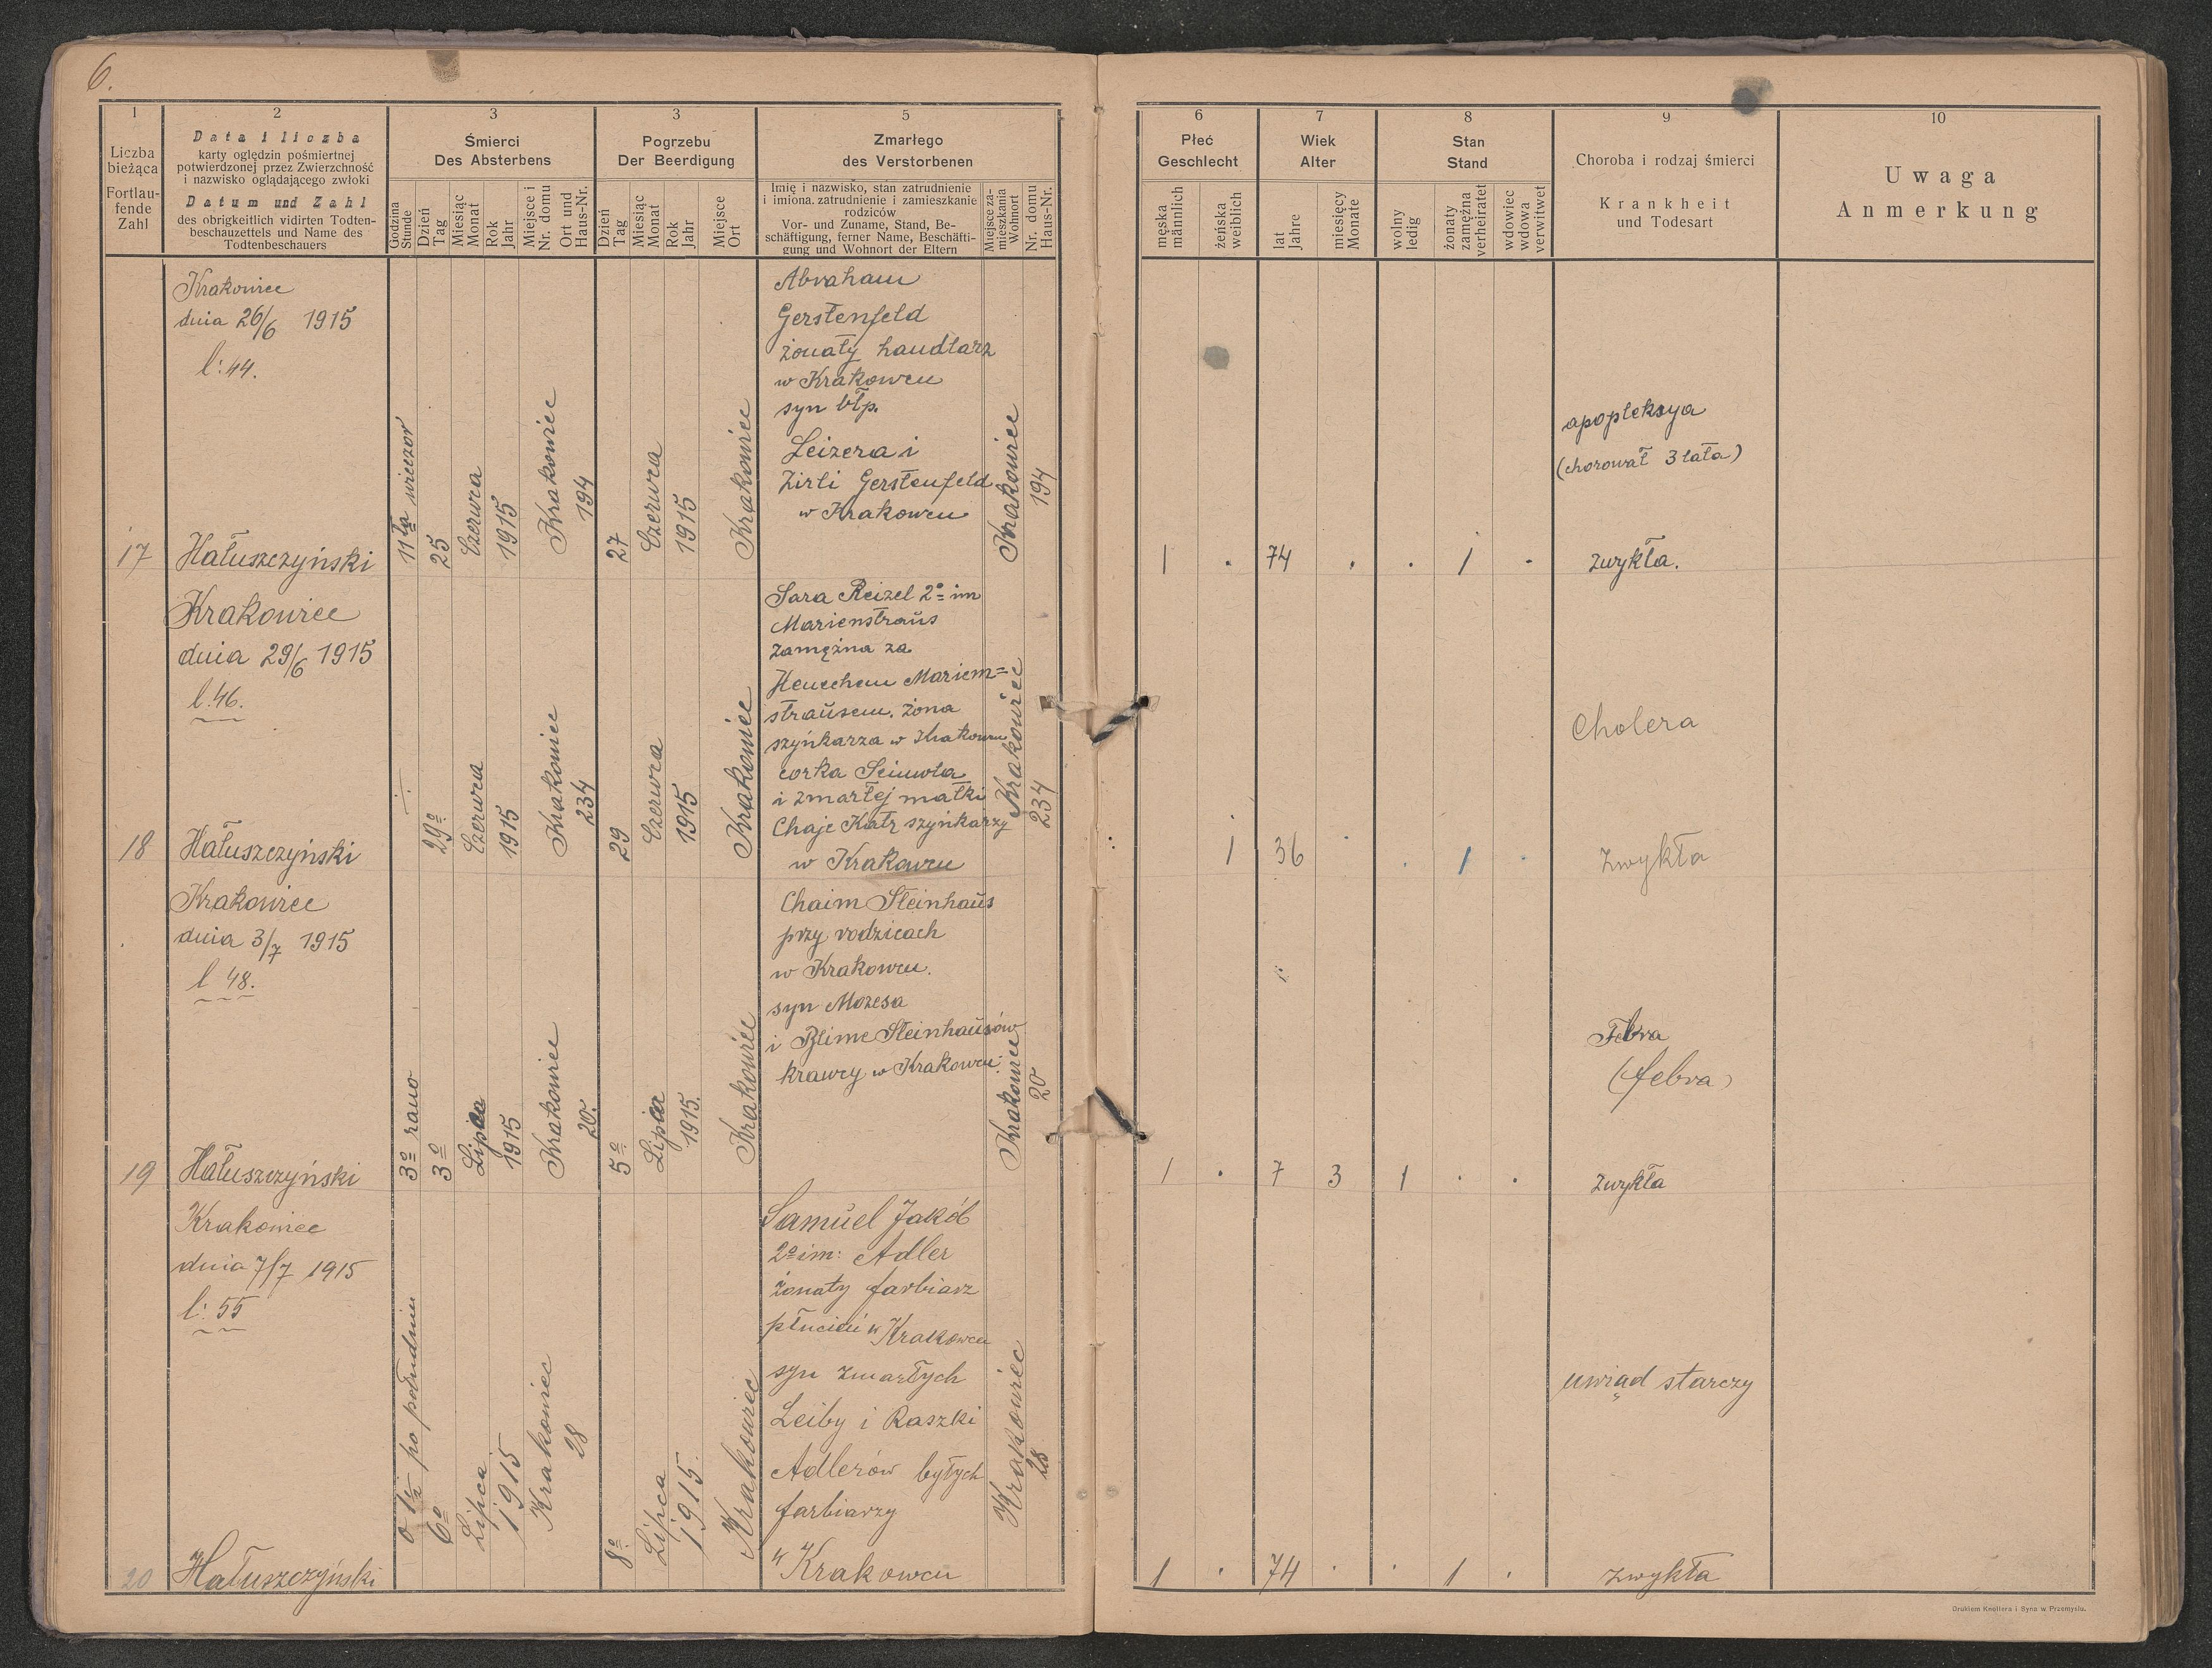 6.
1
2
3
3
5
Liczba
bieżąca
Fortlau-
fende
Zahl
Data i liczba
karty oględzin pośmiertnej
potwierdzonej przez Zwierzchność
i nazwisko oglądającego zwłoki
Datum und Zahl
des obrigkeitlich vidirten Todten-
beschauzettels und Name des
Todtenbeschauers
Śmierci
Des Absterbens
Godzina
Stunde
Dzień
Tag
Miesiąc
Monat
Rok
Jahr
Miejsce i
Nr. domu
Ort und
Haus-Nr.
Pogrzebu
Der Beerdigung
Dzień
Tag
Miesiąc
Monat
Rok
Jahr
Miejsce
Ort
Zmarłego
des Verstorbenen
Imię i nazwisko, stan zatrudnienie
i imiona. zatrudnienie i zamieszkanie
rodziców
Vor- und Zuname, Stand, Be-
schäftigung, ferner Name, Beschäfti-
gung und Wohnort der Eltern
Miejsce za-
mieszkania
Wohnort
Nr. domu
Haus-Nr.
6
7
8
9
10
Płeć
Geschlecht
męska
männlich
żeńska
weiblich
Wiek
Alter
lat
Jahre
miesięcy
Monate
Stan
Stand
wolny
ledig
żonaty
zamężna
verheiratet
wdowiec
wdowa
verwitwet
Choroba i rodzaj śmierci
Krankheit
und Todesart
Uwaga
Anmerkung
17
Krakowiec
dnia 26/6 1915
l: 44.
Hałuszczyński
11ta wieczor
25
Czerwca
1915
Krakowiec
194
27
Czerwca
1915
Krakowiec
Abraham
Gerstenfeld
żonaty handlarz
w Krakowcu
syn błp.
Leizera i
Zirli Gerstenfeld
w Krakowcu
Krakowiec
194
1 . 74 . . 1 .
apopleksya
(chorował 3 lata)
zwykła.
18
Krakowiec
dnia 29/6 1915
l. 46.
Hałuszczyński
29o
Czerwca
1915
Krakowiec
234
29
Czerwca
1915
Krakowiec
Sara Reizel 2o im
Marienstraŭs
zamężna za
Henechem Mariem=
straŭsem. żona
szynkarza w Krakowcu
corka
i zmarłej matki
Chaje Katz szynkarzy
w Krakowcu
Krakowiec
234
1 36 . . 1 .
Cholera
Zwykła
19
Krakowiec
dnia 3/7 1915
l 48.
Hałuszczyński
3o rano
3o
Lipca
1915
Krakowiec
20.
5o
Lipca
1915.
Krakowiec
Chaim Steinhaŭs
przy rodzicach
w Krakowcu.
syn Mozesa
i Blime Steinhaŭsów
krawcy w Krakowcu.
Krakowiec
20
1 . 7 3 1 . .
Febra
(febra)
zwykła
20
Krakowiec
dnia 7/7 1915
l: 55
Hałuszczyński
po południu
6o
Lipca
1915
Krakowiec
28
8o
Lipca
1915.
Krakowiec
Samŭel Jakób
2o im: Adler
żonaty farbiarz
w Krakowcu
syn zmarłych
Leiby i Raszki
Adlerów byłych
farbiarzy
w Krakowcu
Krakowiec
28
1 . 74 . . 1 .
uwiąd starczy
zwykła
Drukiem Knollera i Syna w Przemyślu.